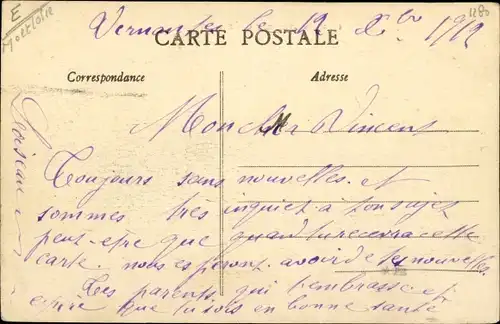 E
Moelloire
1280
Vernantes le 12 Xbre 1912
CARTE POSTALE
Correspondance
Adresse
Loiseau
Mon cher Vincent
Toujours sans nouvelles et
sommes très inquiet à ton sujet
peut-etre que quand tu recevra cette
carte nous esperont avoir de tes nouvelles.
Tes parents qui t'embrasse et
desire que tu sois en bonne santé